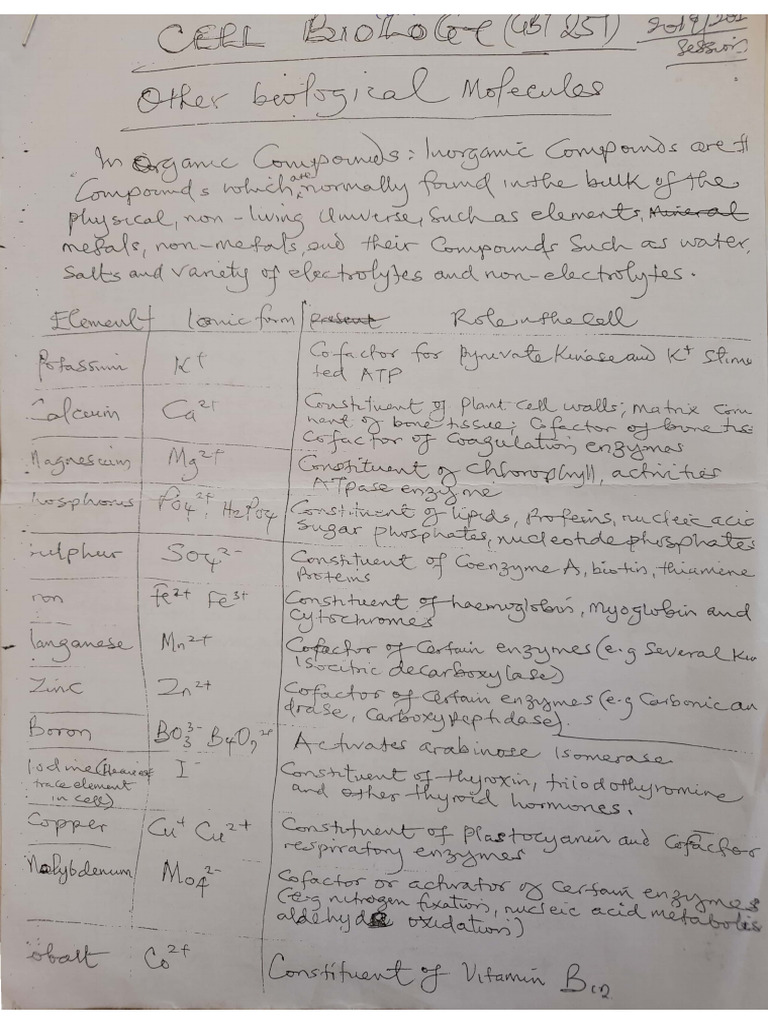 CELL BIOLOGY (CBT 251) 2019/202
Session
Other biological Molecules
Inorganic Compounds: Inorganic Compounds are th
Compounds which are normally found in the bulk of the
physical, non-living Universe, Such as elements, Mineral
metals, non-metals, and their Compounds Such as water,
Salts and variety of electrolytes and non-electrolytes.
Element Ionic form present Role in the Cell
Potassium K+ Cofactor for pyruvate Kinase and K+ Stimu
ted ATP
Calcium Ca2+ Constituent of plant cell walls; matrix com
nent of bone tissue; Cofactor of bone tis
Cofactor of Coagulation enzymes
Magnesium Mg2+ Constituent of chlorophyll, activities
ATpase enzyme
hosphorus PO42+, H2PO4 Constituent of lipids, Proteins, nucleic acid
Sugar phosphates, nucleotide phosphates
Sulphur SO42- Constituent of Coenzyme A, biotin, thiamine
Proteins
ron Fe2+ Fe3+ Constituent of haemoglobin, myoglobin and
Cytochromes
langanese Mn2+ Cofactor of Certain enzymes (e.g Several Kin
Isocitric decarboxylase)
Zinc Zn2+ Cofactor of Certain enzymes (e.g Carbonic an
drase, Carboxypeptidase).
Boron BO33- B4O72- Activates arabinose Isomerase
Iodine (Heaviest
trace element
in cell) I- Constituent of thyroxin, triiodothyromine
and other thyroid hormones.
Copper Cu+ Cu2+ Constituent of plastocyanin and Cofactor
respiratory enzymes
Molybdenum MoO42- Cofactor or activator of Certain enzymes
(e.g nitrogen fixation, nucleic acid metabolis
aldehyde oxidation)
obalt Co2+ Constituent of Vitamin B12